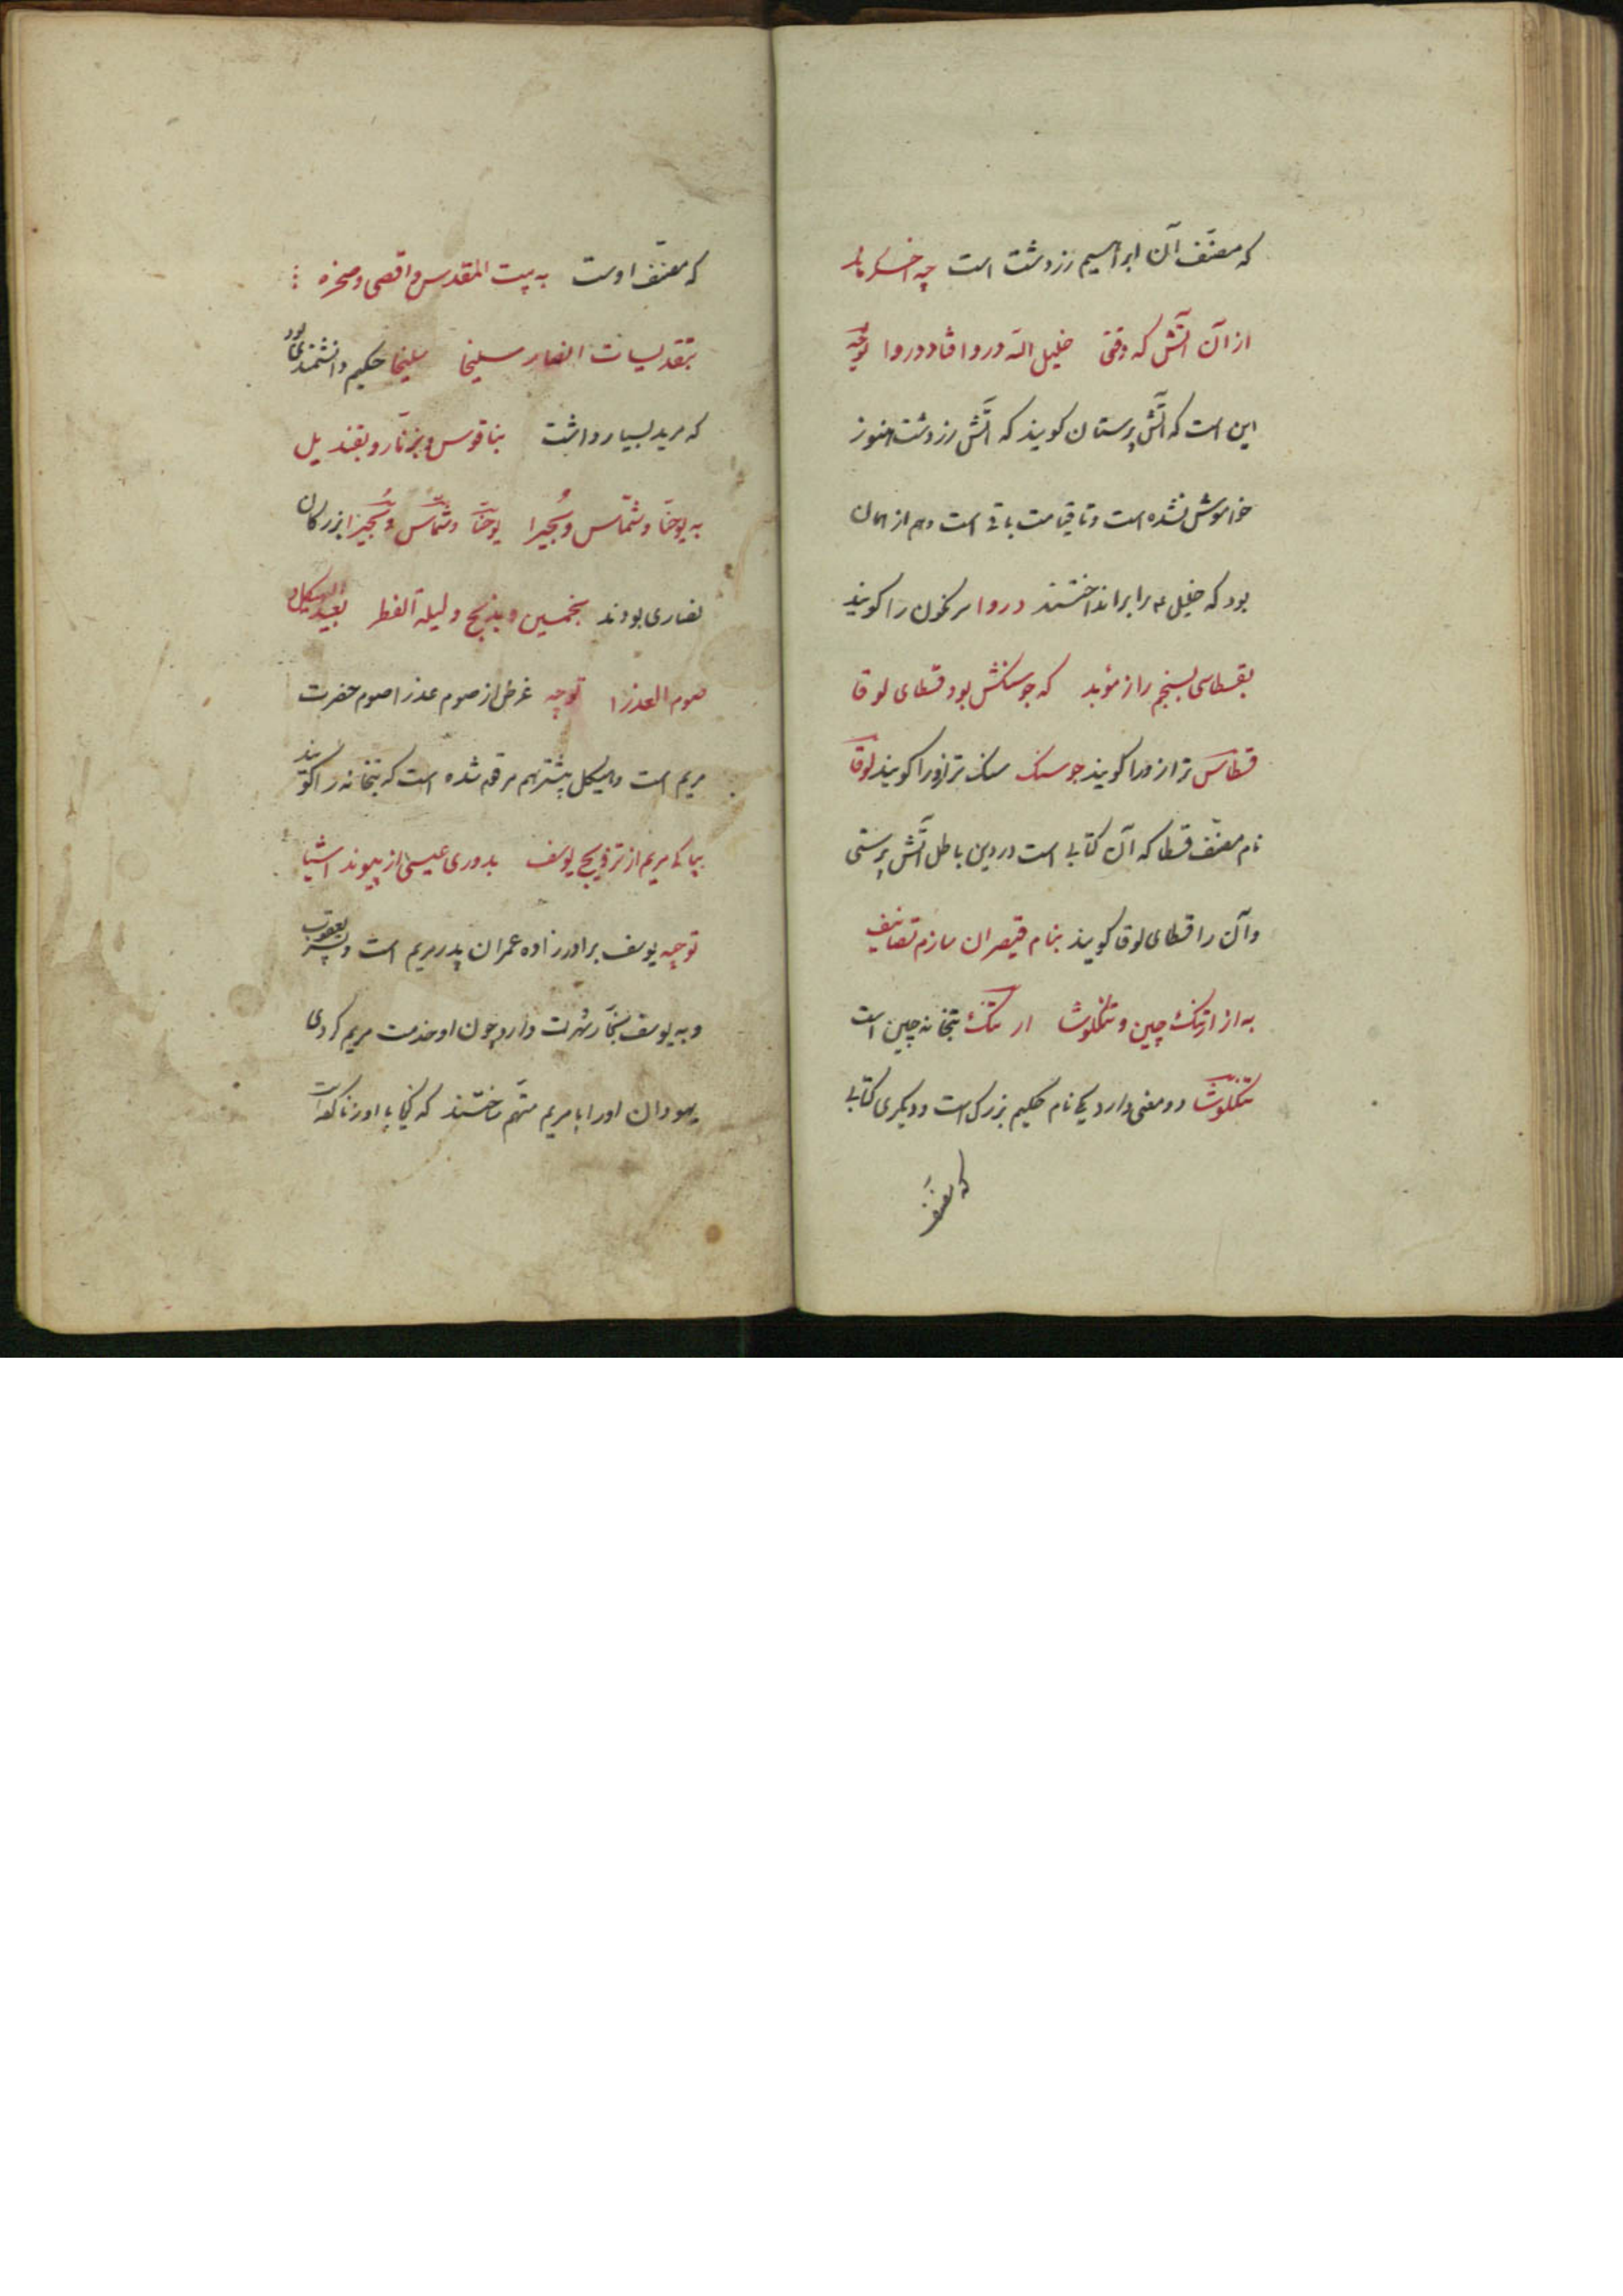 که مصنّف آن ابراهیم زردشت است چه اخگر ماند
از آن آتش که وقتی خلیل الله دروا فتاد دروا توجه
این است که آتش پرستان کویند که آتش زردشت هنوز
خاموش نشده است و تا قیامت باقی است و هم از همان
بود که خلیل ع م را برانداختند دروا سرنکون را کویند
بقسطاسی بسنجم راز مؤبد که جوسنکش بود قسطای لوقا
قسطاس ترازو را کویند جوسنک سنک ترازو را کویند لوقا
نام مصنّف قسطا که آن کتابی است در دین باطل آتش پرستی
و آن را قسطای لوقا کویند بنام قیصران سازم تصانیف
به از ارتنک چین و تنکلوشا ارتنک بتخانه چین است
تنکلوشا دو معنی دارد یکی نام حکیم بزرک است و دیکری کتابی
که مصنّف
که مصنّف اوست به بیت المقدس و اقصی و صخره
بتقدیسات انصار سلیخا سلیخا حکیم دانشمندی بود
که مرید بسیار داشت بناقوس و بزنّار و بقندیل
به یوحنّا و شمّاس و بُحیرا یوحنّا و شمّاس و بُحیرا بزرکان
نصاری بودند بخمسین و بذبح و لیلة الفطر بعید الهیکل و
صوم العذرا توجه غرض از صوم عذرا صوم حضرت
مریم است و هیکل پیشتر هم مرقوم شده است که بتخانه را کویند
بپاکی مریم از تزویج یوسف بدوری عیسی از پیوند اشیا
توجه یوسف برادرزاده عمران پدر مریم است و پسر یعقوب
و به یوسف نجّار شهرت دارد چون او خدمت مریم کردی
یهودان او را با مریم متهم ساختند که با او زنا کرده است